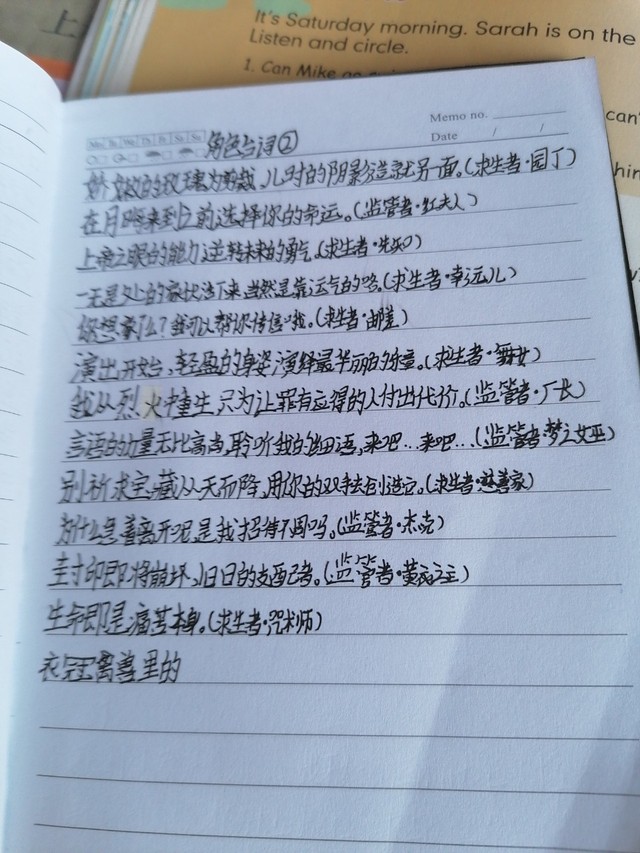 It's Saturday morning. Sarah is on the
Listen and circle.
1. Can Mike go
can'
Memo no.
Date / /
Mo Tu We Th Fr Sa Su
角色台词②
娇嫩的玫瑰为剪裁,儿时的阴影造就另一面。(求生者·园丁)
在月明来到之前选择你的命运。(监管者·红夫人)
上帝之眼的能力逆转未来的勇气。(求生者·先知)
一无是处的家伙活下来当然是靠运气的咯。(求生者·幸运儿)
你想寄什么?我可以帮你传信哦。(求生者·邮差)
演出开始,轻盈的身姿演绎最华丽的乐章。(求生者·舞女)
我从烈火中重生,只为让罪有应得的人付出代价。(监管者·厂长)
言语的力量无比高尚,聆听我的细语,来吧…来吧…(监管者·梦之女巫)
别祈求宝藏从天而降,用你的双手去创造它。(求生者·慈善家)
为什么急着离开呢,是我招待不周吗。(监管者·杰克)
封印即将崩坏,旧日的支配者。(监管者·黄衣之主)
生命即是痛苦本身。(求生者·咒术师)
衣冠禽兽里的